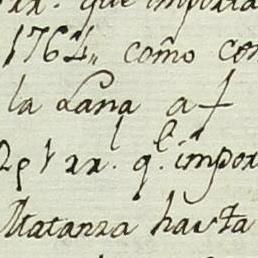 rr. que importa
1764,, com̃o con
la Lana a
rr. q.^e impor
Matanza hasta